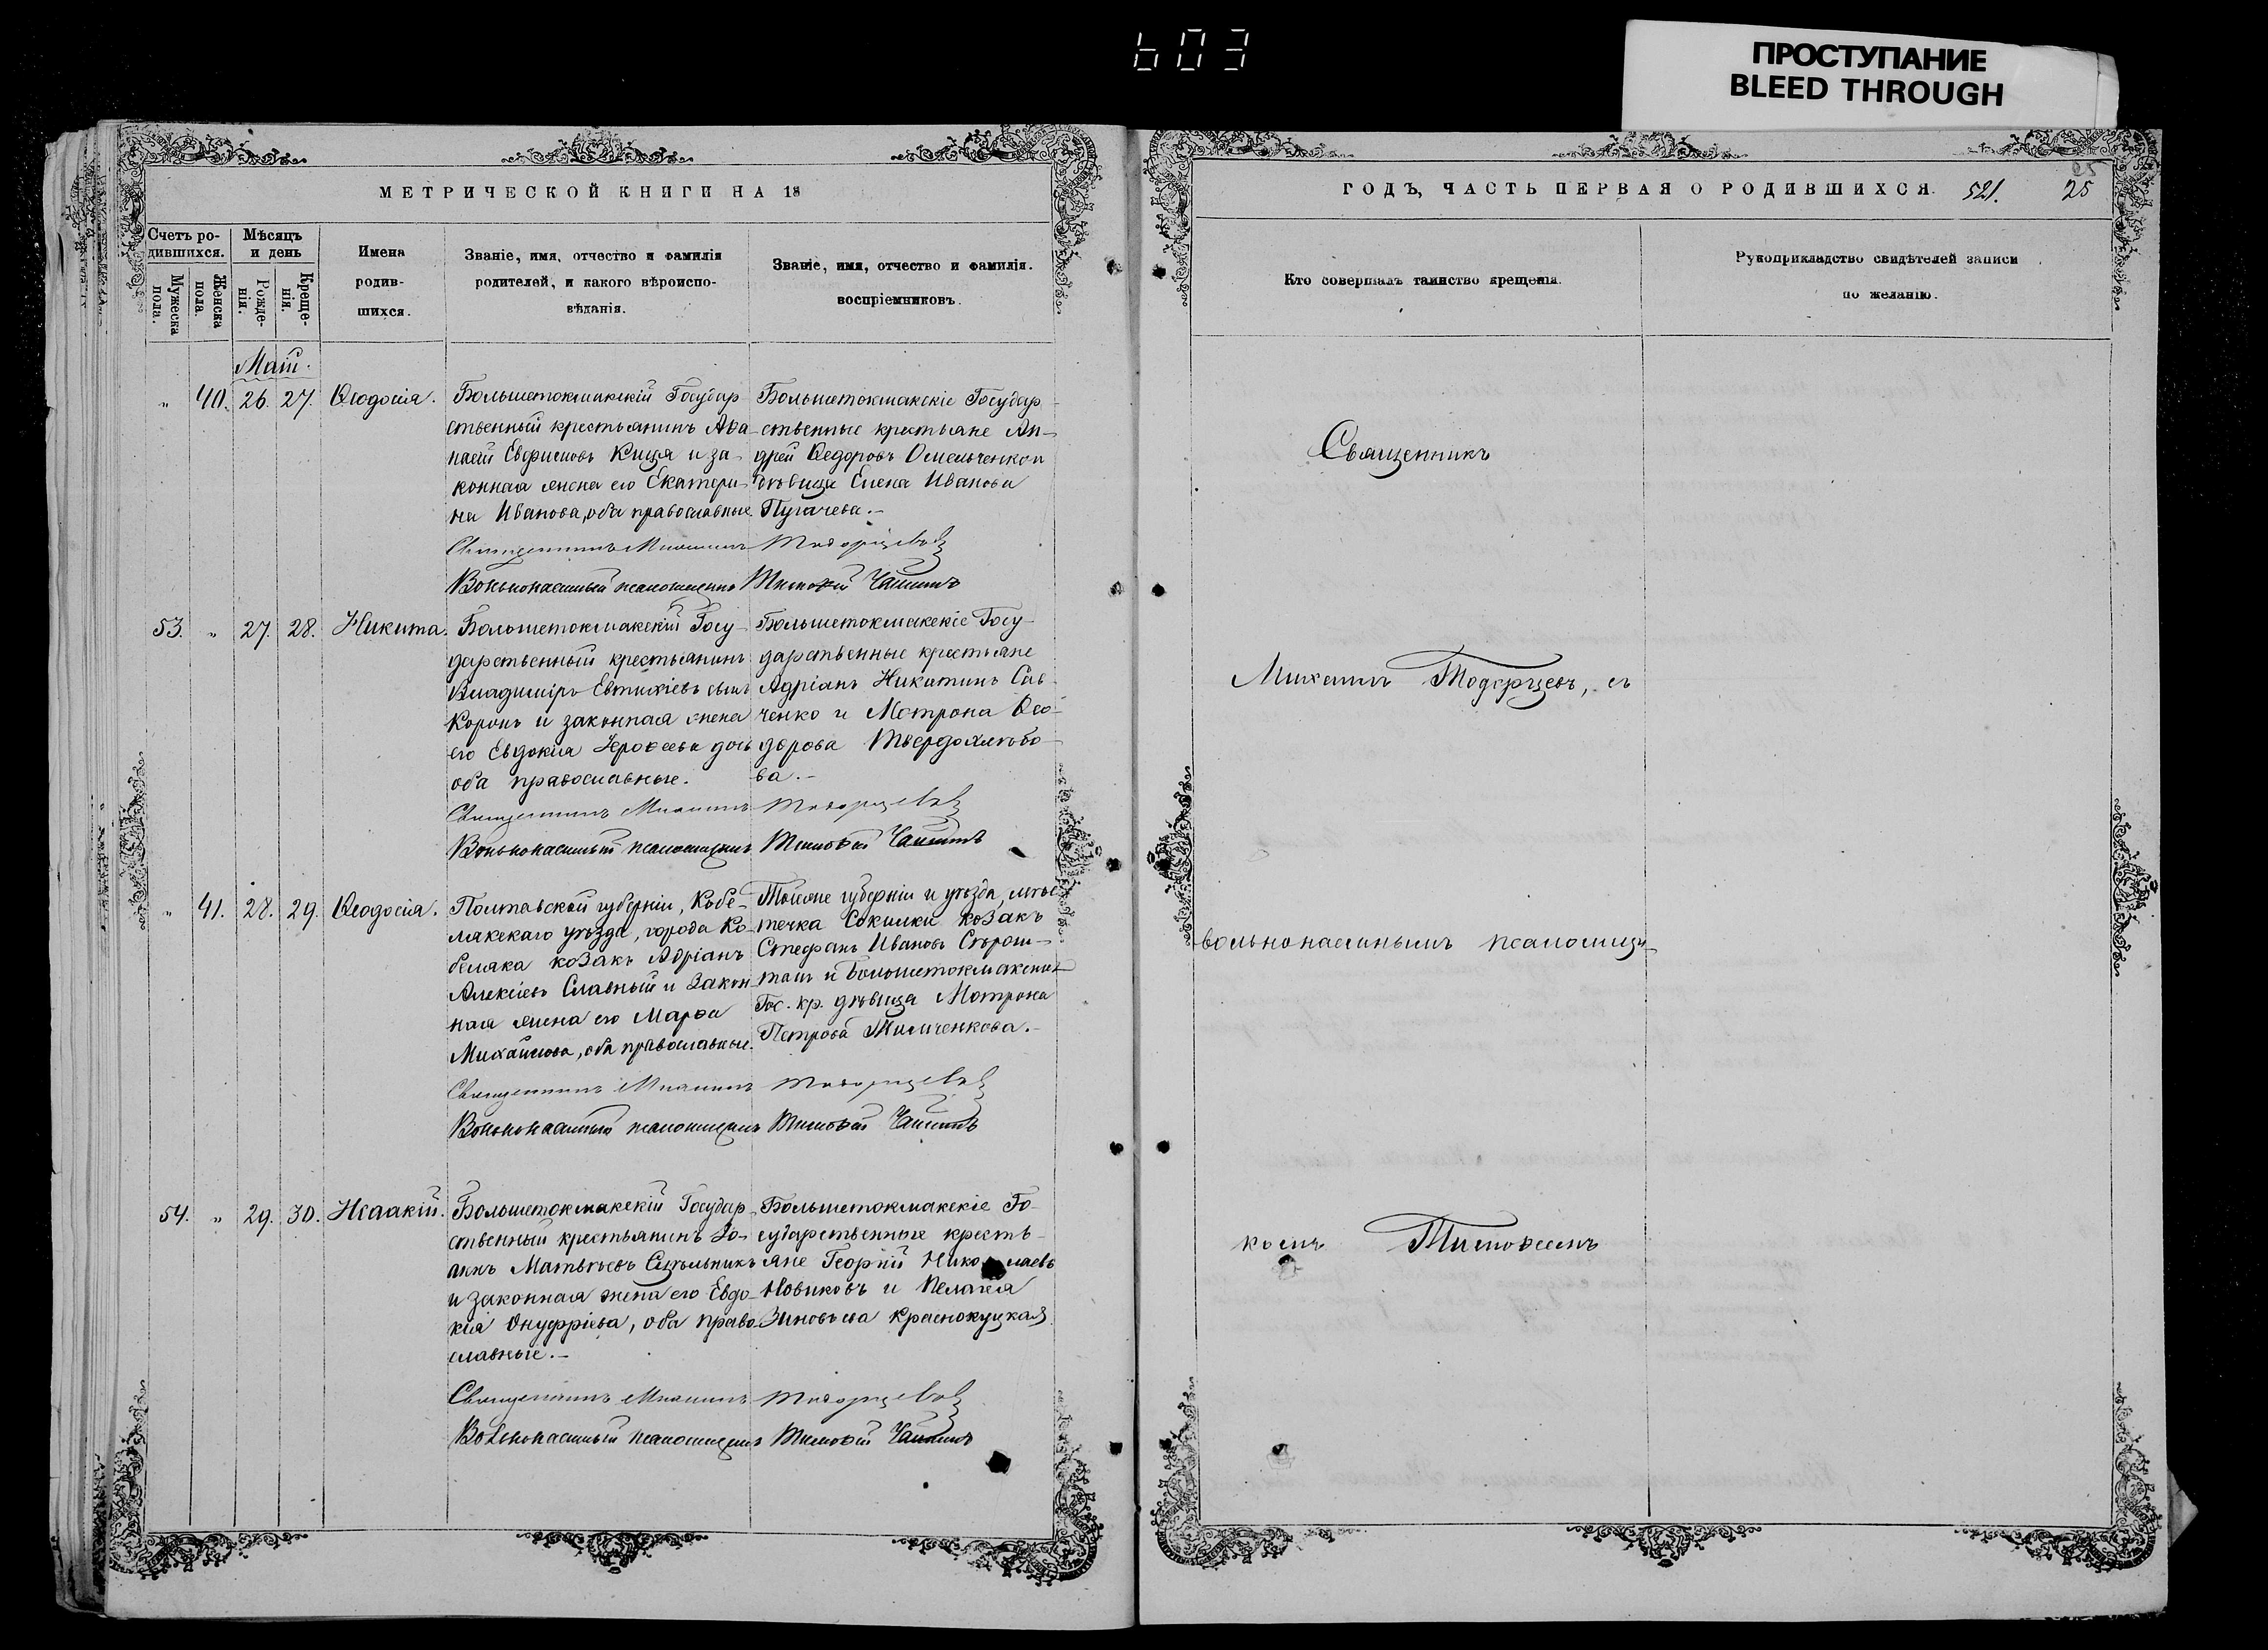 603
ПРОСТУПАНИЕ
BLEED THROUGH
МЕТРИЧЕСКОЙ КНИГИ НА 18
Счетъ ро-
дившихся.
Мужеска пола.
Женска пола.
Мѣсяцъ и день
Рожде-
нія.
Креще-
нія.
Имена
родив-
шихся.
Званіе, имя, отчество и фамилія
родителей, и какого вѣроиспо-
вѣданія.
Званіе, имя, отчество и фамилія.
воспріемниковъ.
Маій.
„ 40. 26. 27. Ѳеодосія.
Большетокмакскій Государ
ственный крестьянинъ Ѳеа
Евфимовъ Куця и за-
конная жена его Екатери-
на Иванова, оба православные
Большетокмакскіе Государ
ственные крестьяне Ан-
дрей Ѳедоровъ Омельченко и
дѣвица Елена Иванова
Пугачева.-
Священникъ Михаилъ Тодорцевъ
Вольнонаемный псаломщикъ Тимоѳей
53. „ 27. 28. Никита.
Большетокмакскій Госу-
дарственный крестьянинъ
Владиміръ Евтихіевъ сынъ
Коронъ и законная жена
его Евдокія Іероѳеева дочь
оба православные.
Большетокмакскіе Госу-
дарственные крестьяне
Адріанъ Никитинъ Сав-
ченко и Мотрона Ѳео-
дорова Твердохлѣбо-
ва.-
Священникъ Михаилъ Тодорцевъ
Вольнонаемный псаломщикъ Тимоѳей
„ 41. 28. 29. Ѳеодосія.
Полтавской губерніи, Кобе-
лякскаго уѣзда, города Ко-
беляка козакъ Адріанъ
Алексіевъ Славный и закон
ная жена его Марѳа
Михайлова, оба православные.
Тойже губерніи и уѣзда, мѣс
течка Сокилки козакъ
Стефанъ Ивановъ
и Большетокмакская
Гос. кр. дѣвица Мотрона
Петрова Тимченкова.-
Священникъ Михаилъ Тодорцевъ
Вольнонаемный псаломщикъ Тимоѳей
54. „ 29. 30. Исаакій.
Большетокмакскій Государ
ственный крестьянинъ Іо-
аннъ Матвѣевъ
и законная жена его Евдо-
кія Онуфріева, оба право
славные.-
Большетокмакскіе Го-
сударственные кресть-
яне Георгій Николаевъ
Новиковъ и Пелагія
Зиновьева Краснокуцкая
Священникъ Михаилъ Тодорцевъ
Вольнонаемный псаломщикъ Тимоѳей
ГОДЪ, ЧАСТЬ ПЕРВАЯ О РОДИВШИХСЯ. 521. 25
25
Кто совершалъ таинство крещенія.
Рукоприкладство свидѣтелей записи
по желанію.
Священникъ
Михаилъ Тодорцевъ, съ
вольнонаемнымъ псаломщи-
комъ Тимоѳеемъ